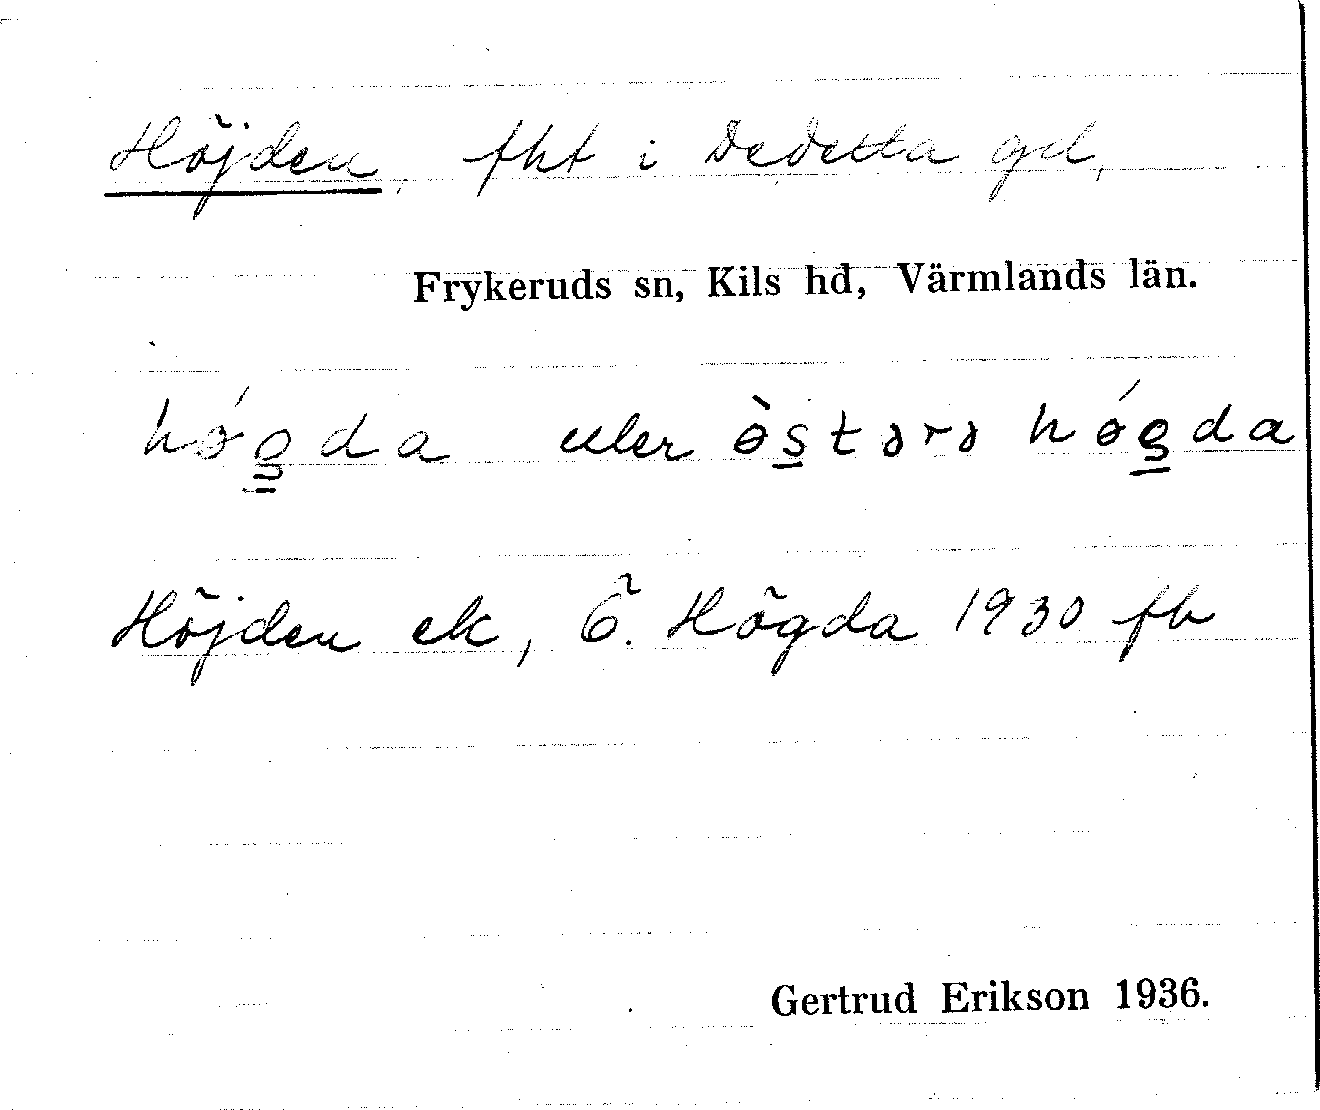 Höjden, fht i Dedetta gd,
Frykeruds sn, Kils hd, Värmlands län.
hǿgda eller ɵ̀stərə hǿgda
Höjden ek, Ö. Högda 1930 fb
Gertrud Erikson 1936.